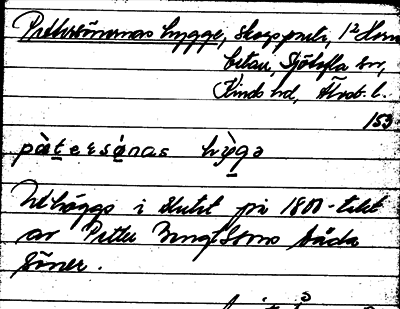 Pettersönernas hygge, skogsparti, 1² Horn
betan, Sjötofta sn,
Kinds hd, Älvsb. l.
153
pàt̲ersø̲nas hỳgə
Uthöggs i slutet på 1800-talet
av Petter Bengtssons båda
söner.